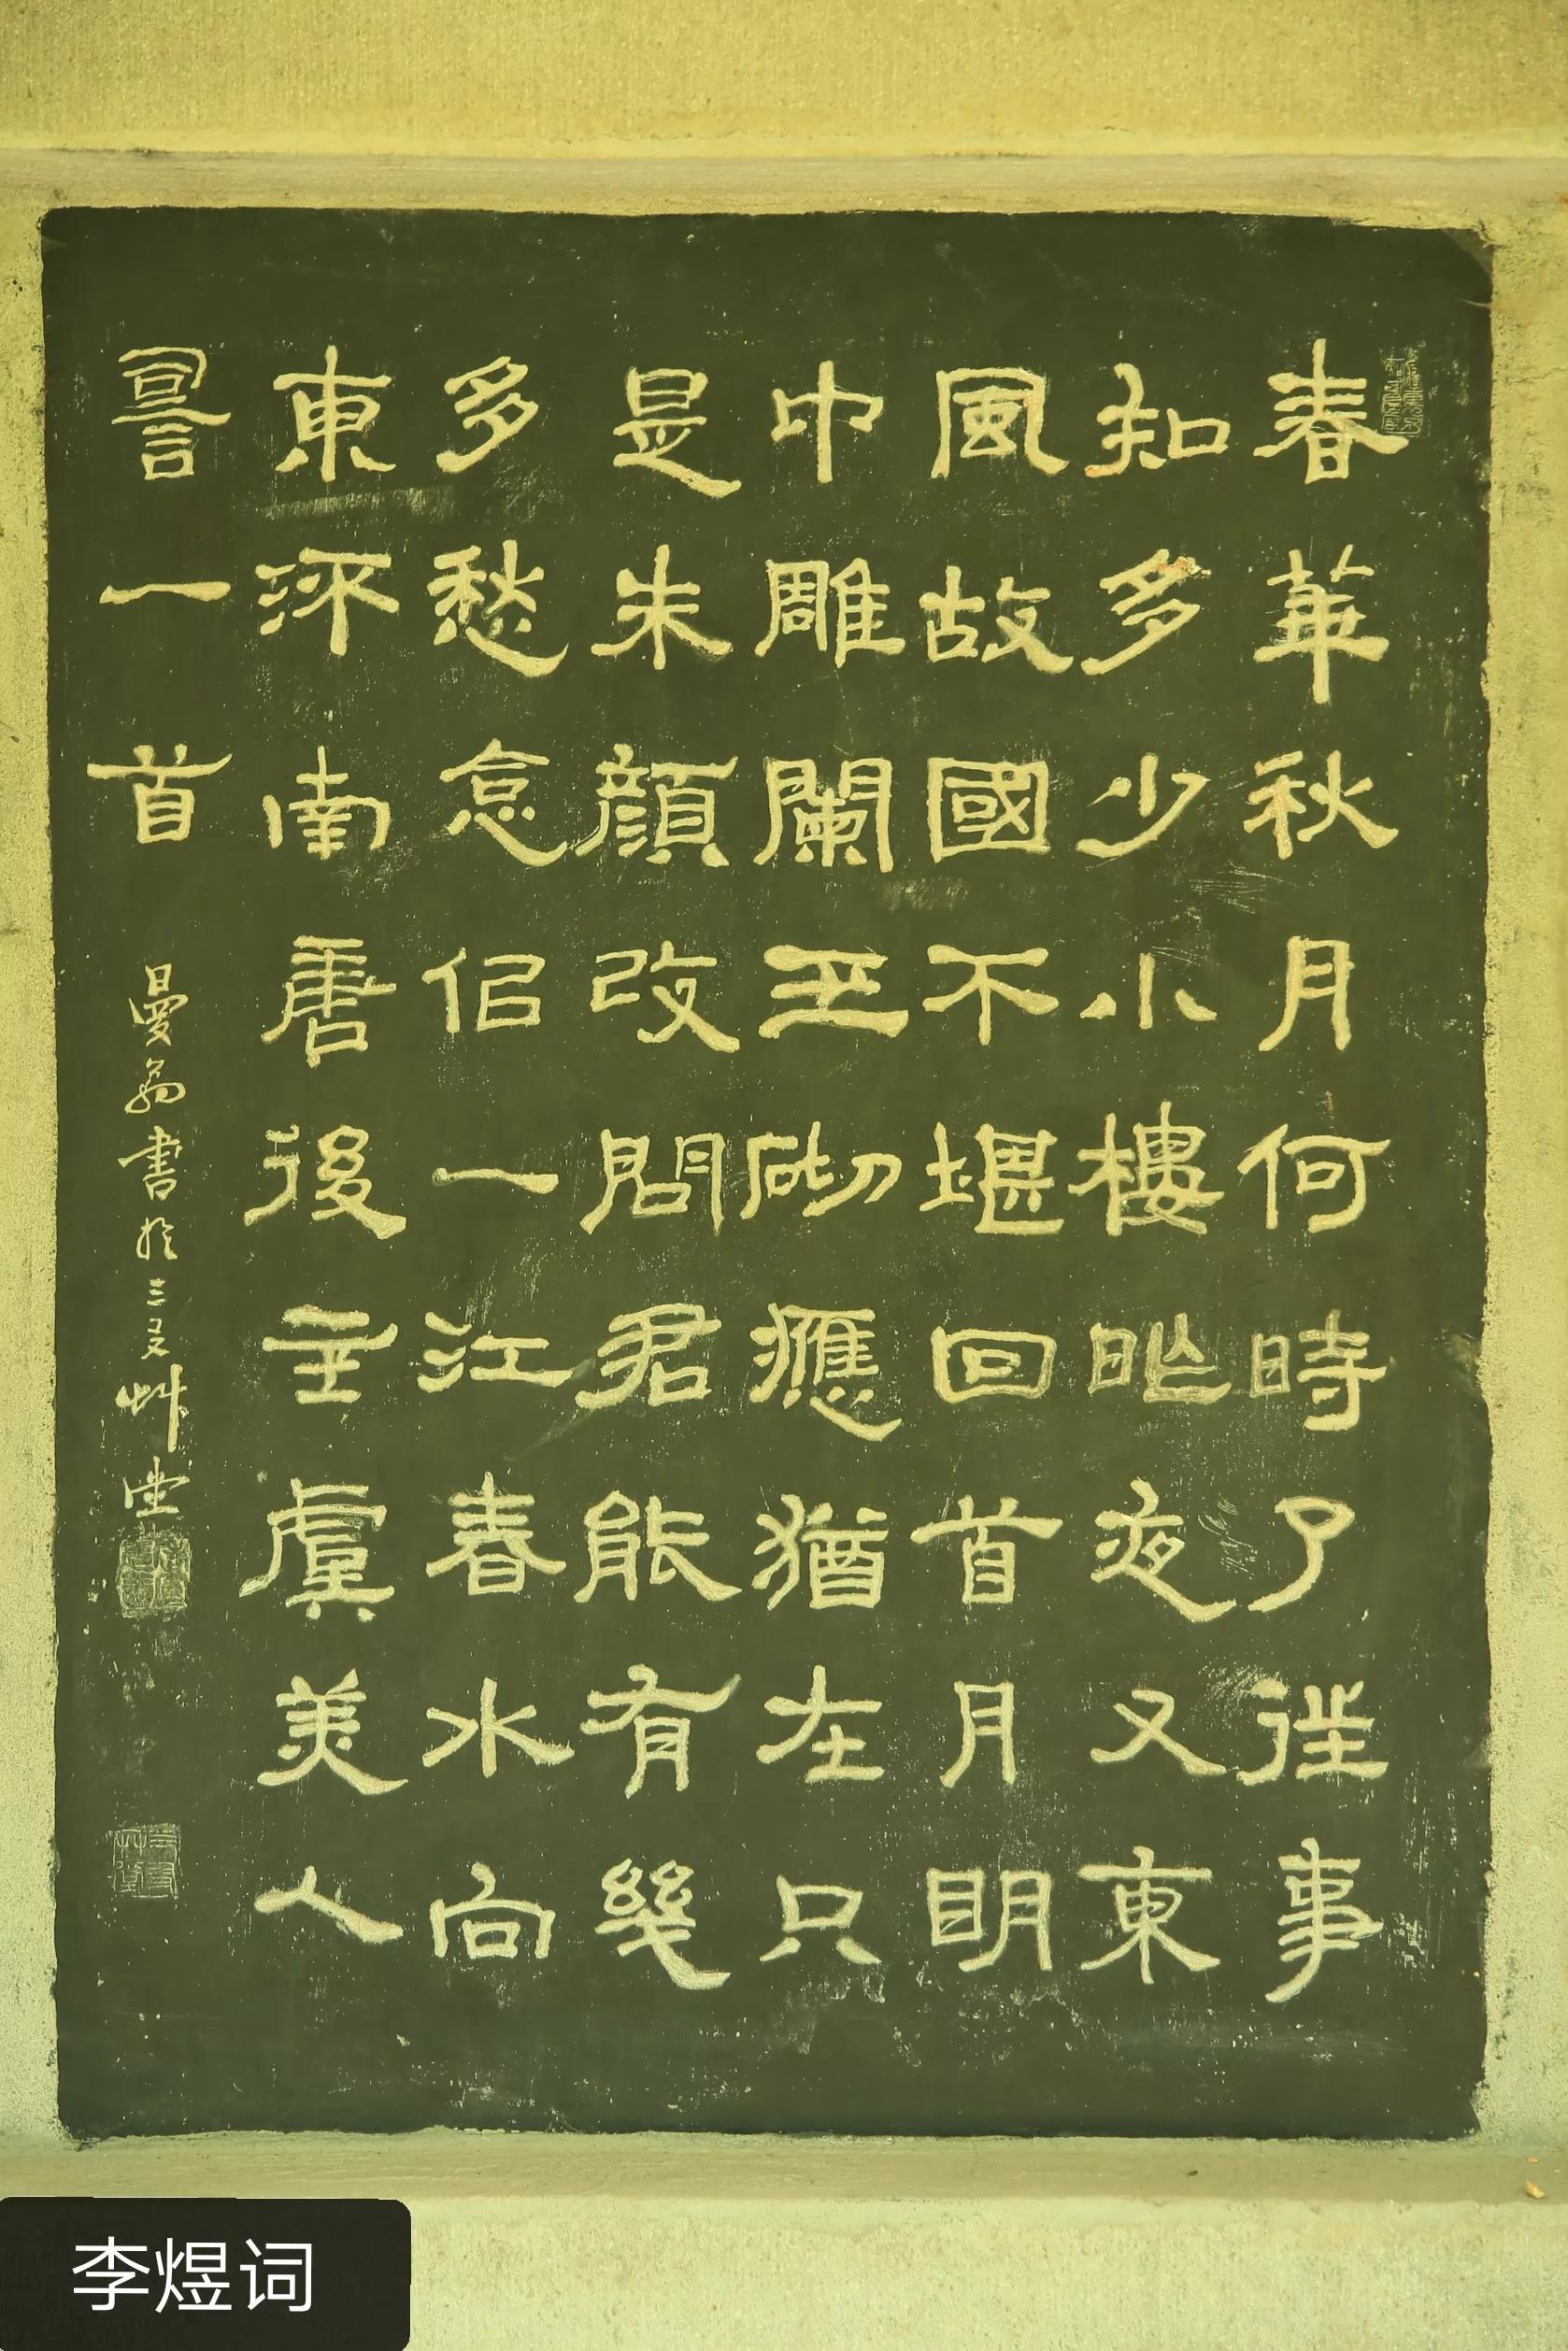 春華秋月何時了往事
知多少小樓昨夜又東
風故國不堪回首月明
中雕闌玉砌應猶在只
是朱顏改問君能有幾
多愁恰佀一江春水向
東流南唐後主虞美人
詞一首 曼翁書於三友艸堂
李煜词